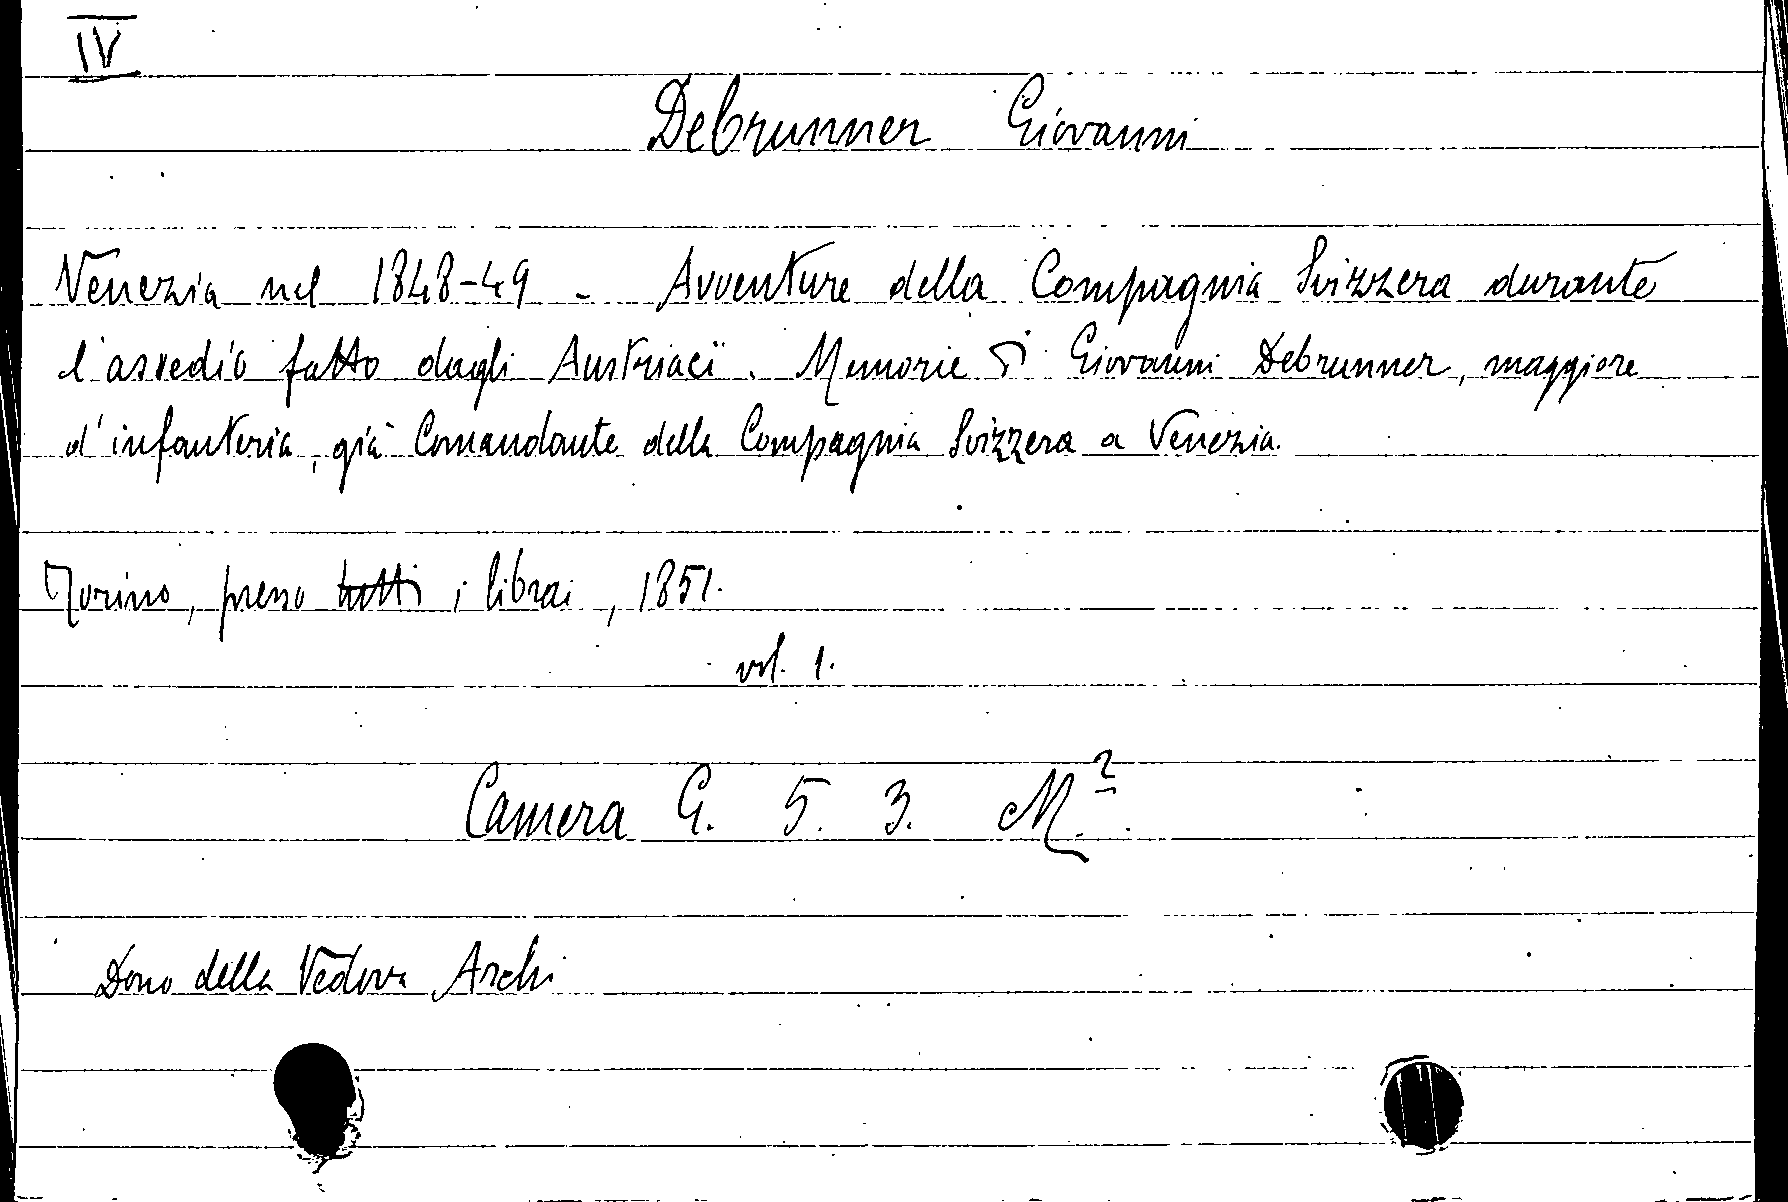 IV
Debrunner Giovanni
Venezia nel 1848-49 - Avventure della Compagnia Svizzera durante
l'assedio fatto dagli Austriaci. Memorie di Giovanni Debrunner, maggiore
d'infanteria, già Comandante della Compagnia Svizzera a Venezia.
Torino, presso tutti i librai, 1851.
vol. 1.
Camera G. 5. 3. M.²
Dono della Vedova Archi